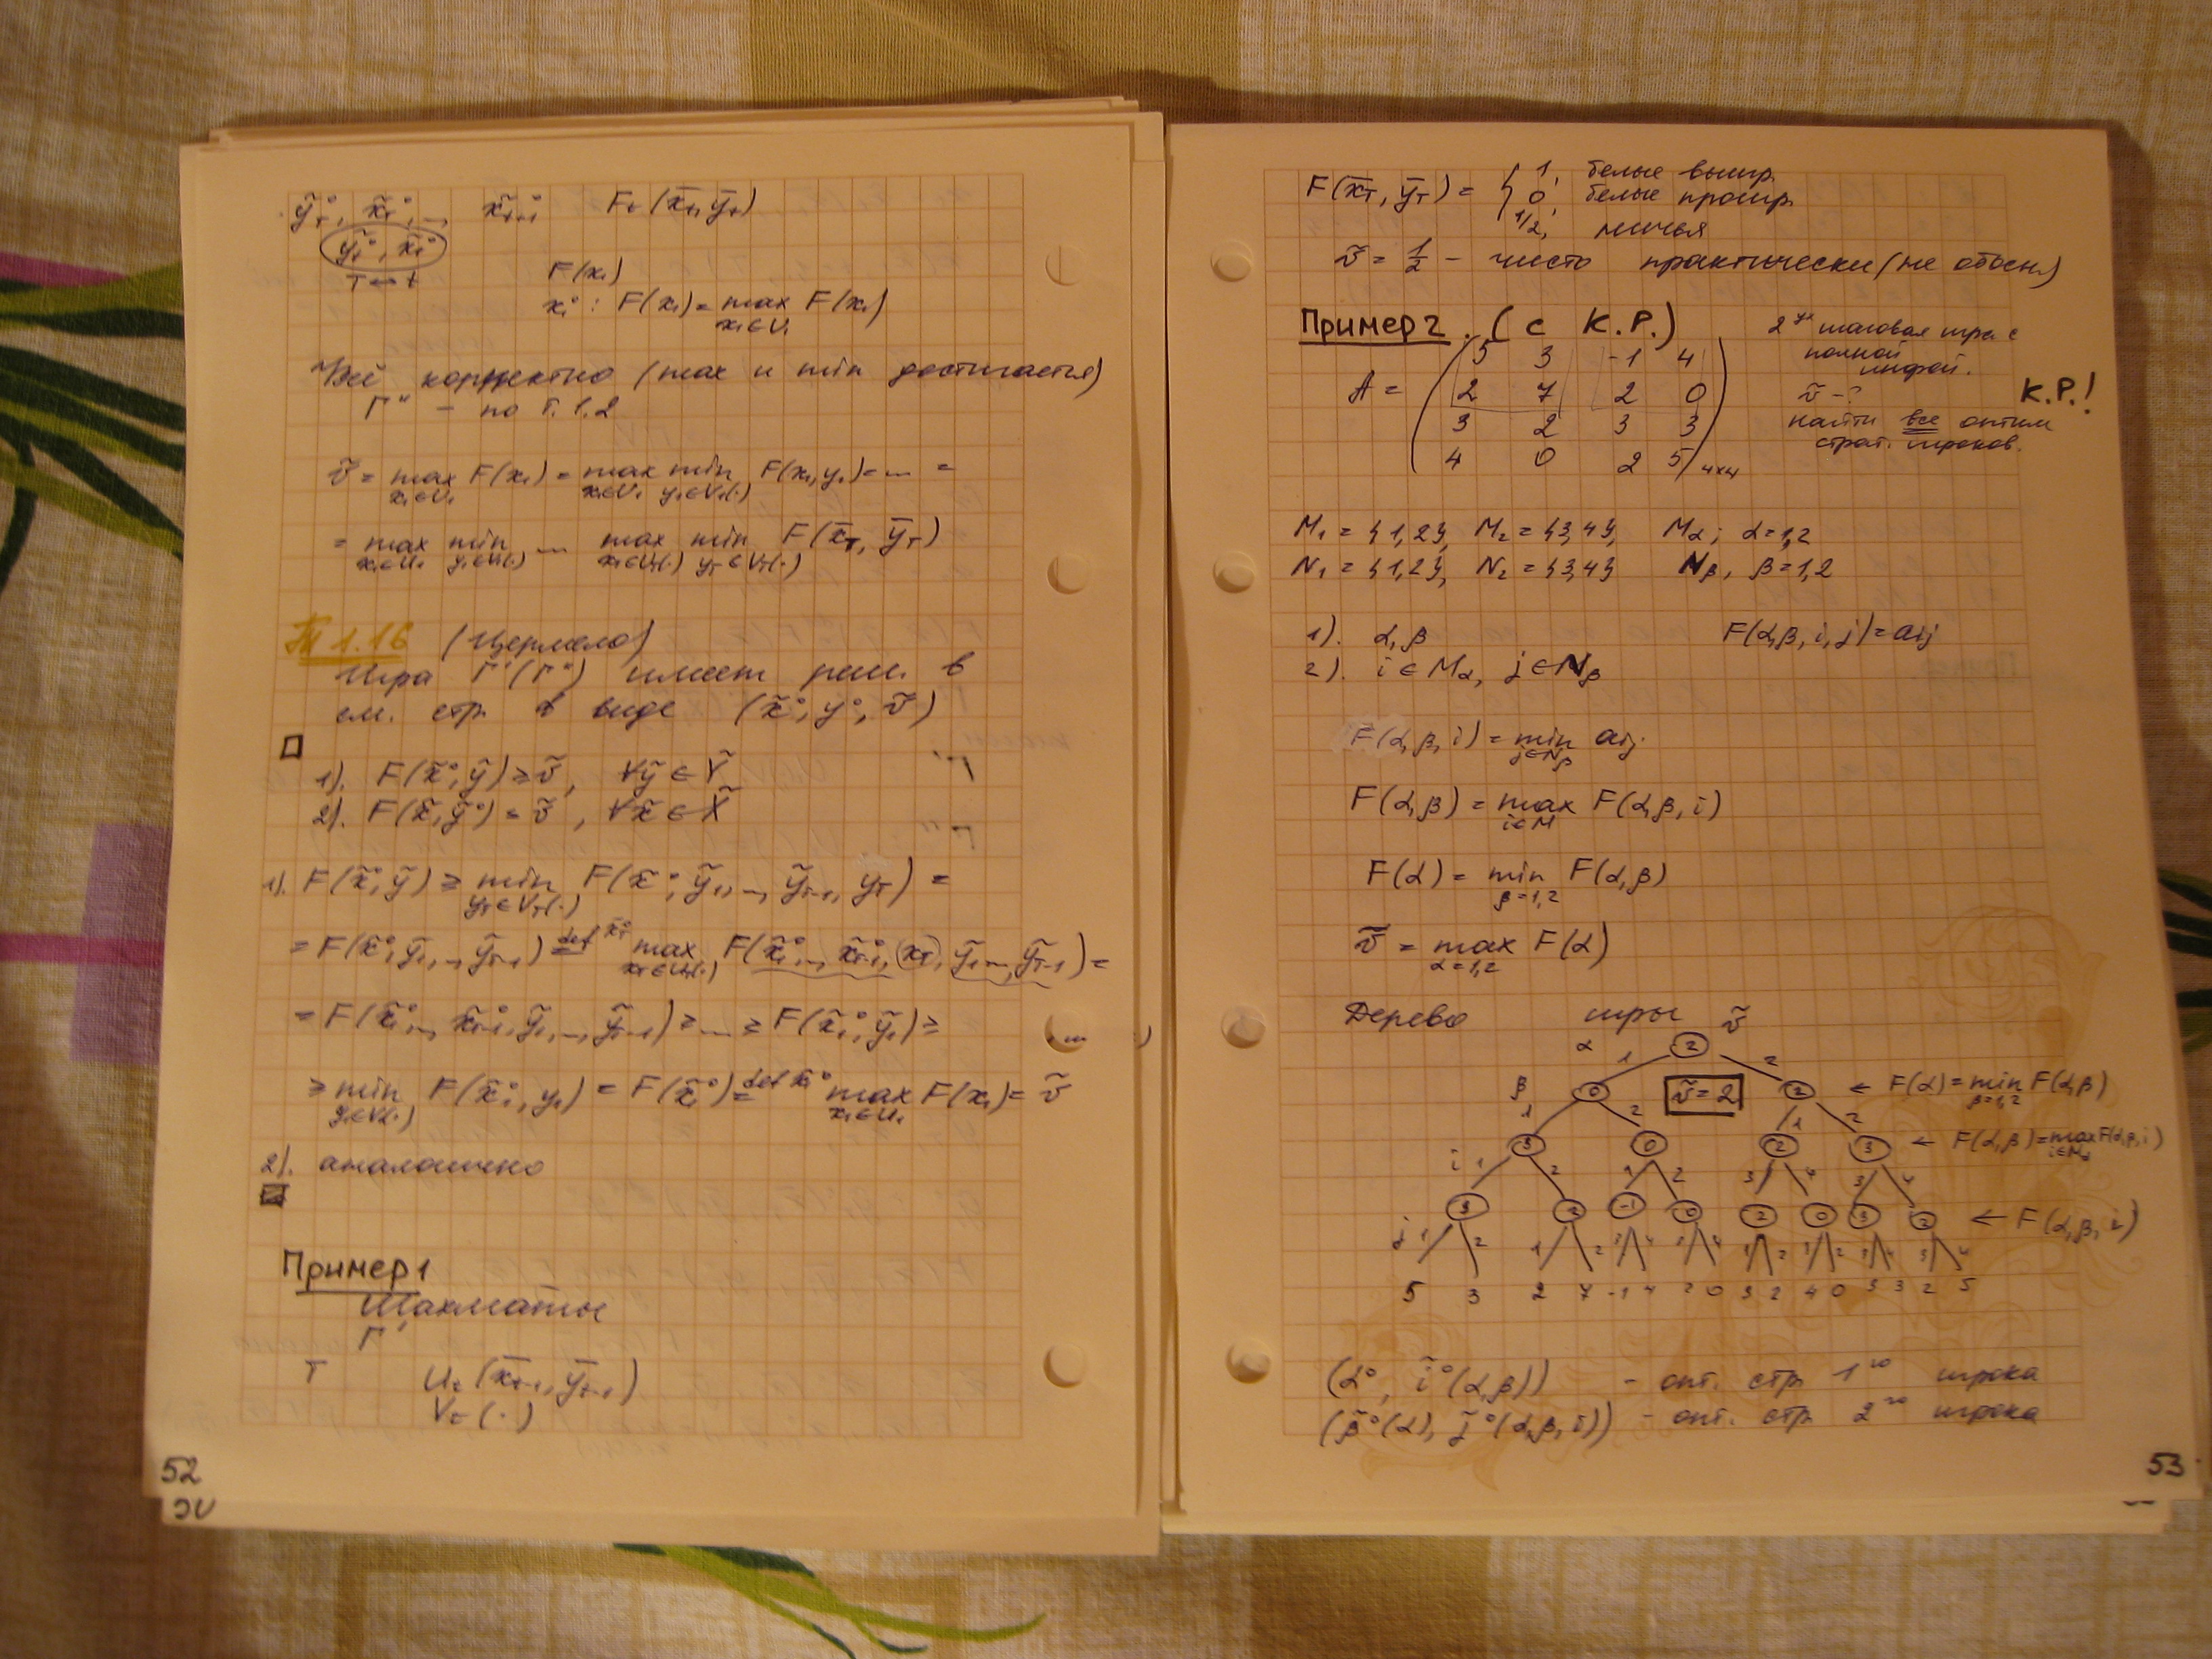 ỹ_T°, x̃_T°, ..., x̃_{t+1}°   F_t(x̄_t, ȳ_t)
ỹ_t°, x̃_t°
T ↔ t
F(x₁)
x₁°: F(x₁) = max_{x₁∈U₁} F(x₁)
Всё корректно (max и min достигается)
Г" – по Т.1.2
ṽ = max_{x₁∈U₁} F(x₁) = max_{x₁∈U₁} min_{y₁∈V₁(·)} F(x₁,y₁) = ... =
= max_{x₁∈U₁} min_{y₁∈V₁(·)} ... max_{x_T∈U_T(·)} min_{y_T∈V_T(·)} F(x̄_T, ȳ_T)
Т 1.16 (Цермело)
Игра Г'(Г") имеет реш. в
см. стр. в виде (x̃°, ỹ°, ṽ)
□
1). F(x̃°, ỹ) ≥ ṽ, ∀ỹ ∈ Ỹ
2). F(x̃, ỹ°) ≤ ṽ, ∀x̃ ∈ X̃
1). F(x̃°, ỹ) ≥ min_{y_T∈V_T(·)} F(x̃°, ỹ₁, ..., ỹ_{T-1}, y_T) =
= F(x̃°, ỹ₁, ..., ỹ_{T-1}) =^{def x̃_T°} max_{x_T∈U_T(·)} F(x̃₁°, ..., x̃_{T-1}°, x_T, ỹ₁, ..., ỹ_{T-1}) =
= F(x̃₁°, ..., x̃_{T-1}°, ỹ₁, ..., ỹ_{T-1}) ≥ ... ≥ F(x̃₁°, ỹ₁) ≥
≥ min_{y₁∈V₁(·)} F(x̃₁°, y₁) = F(x̃₁°) =^{def x̃₁°} max_{x₁∈U₁} F(x₁) = ṽ
2). аналогично
Пример 1
Шахматы
Г'
T   U_t(x̄_{t-1}, ȳ_{t-1})
V_t(·)
52
F(x̄_T, ȳ_T) = { 1, белые выигр.
0, белые проигр.
1/2, ничья
ṽ = 1/2 – чисто практически (не обосн)
Пример 2. (с К.Р.)
2ух шаговая игра с
полной
инфой.
A = ( 5 3 -1 4
2 7 2 0
3 2 3 3
4 0 2 5 ) 4x4
ṽ - ?
К.Р.!
найти все оптим
страт. игроков.
M₁ = {1,2}, M₂ = {3,4}, M_α; α=1,2
N₁ = {1,2}, N₂ = {3,4} N_β, β=1,2
1). α, β   F(α,β,i,j) = a_ij
2). i ∈ M_α, j ∈ N_β
F(α,β,i) = min_{j∈N_β} a_ij
F(α,β) = max_{i∈M} F(α,β,i)
F(α) = min_{β=1,2} F(α,β)
ṽ = max_{α=1,2} F(α)
Дерево игры ṽ
α 1 2 2
β 0 ṽ=2 2 ← F(α) = min_{β=1,2} F(α,β)
1 2 1 2
3 0 2 3 ← F(α,β) = max_{i∈M_α} F(α,β,i)
i 1 2 1 2 3 4 3 4
3 2 -1 0 2 0 3 2 ← F(α,β,i)
j 1 2 1 2 3 4 3 4 1 2 1 2 3 4 3 4
5 3 2 7 -1 4 2 0 3 2 4 0 3 3 2 5
(α°, ĩ°(α,β)) – опт. стр. 1го игрока
(β̃°(α), j̃°(α,β,i)) – опт. стр. 2го игрока
53